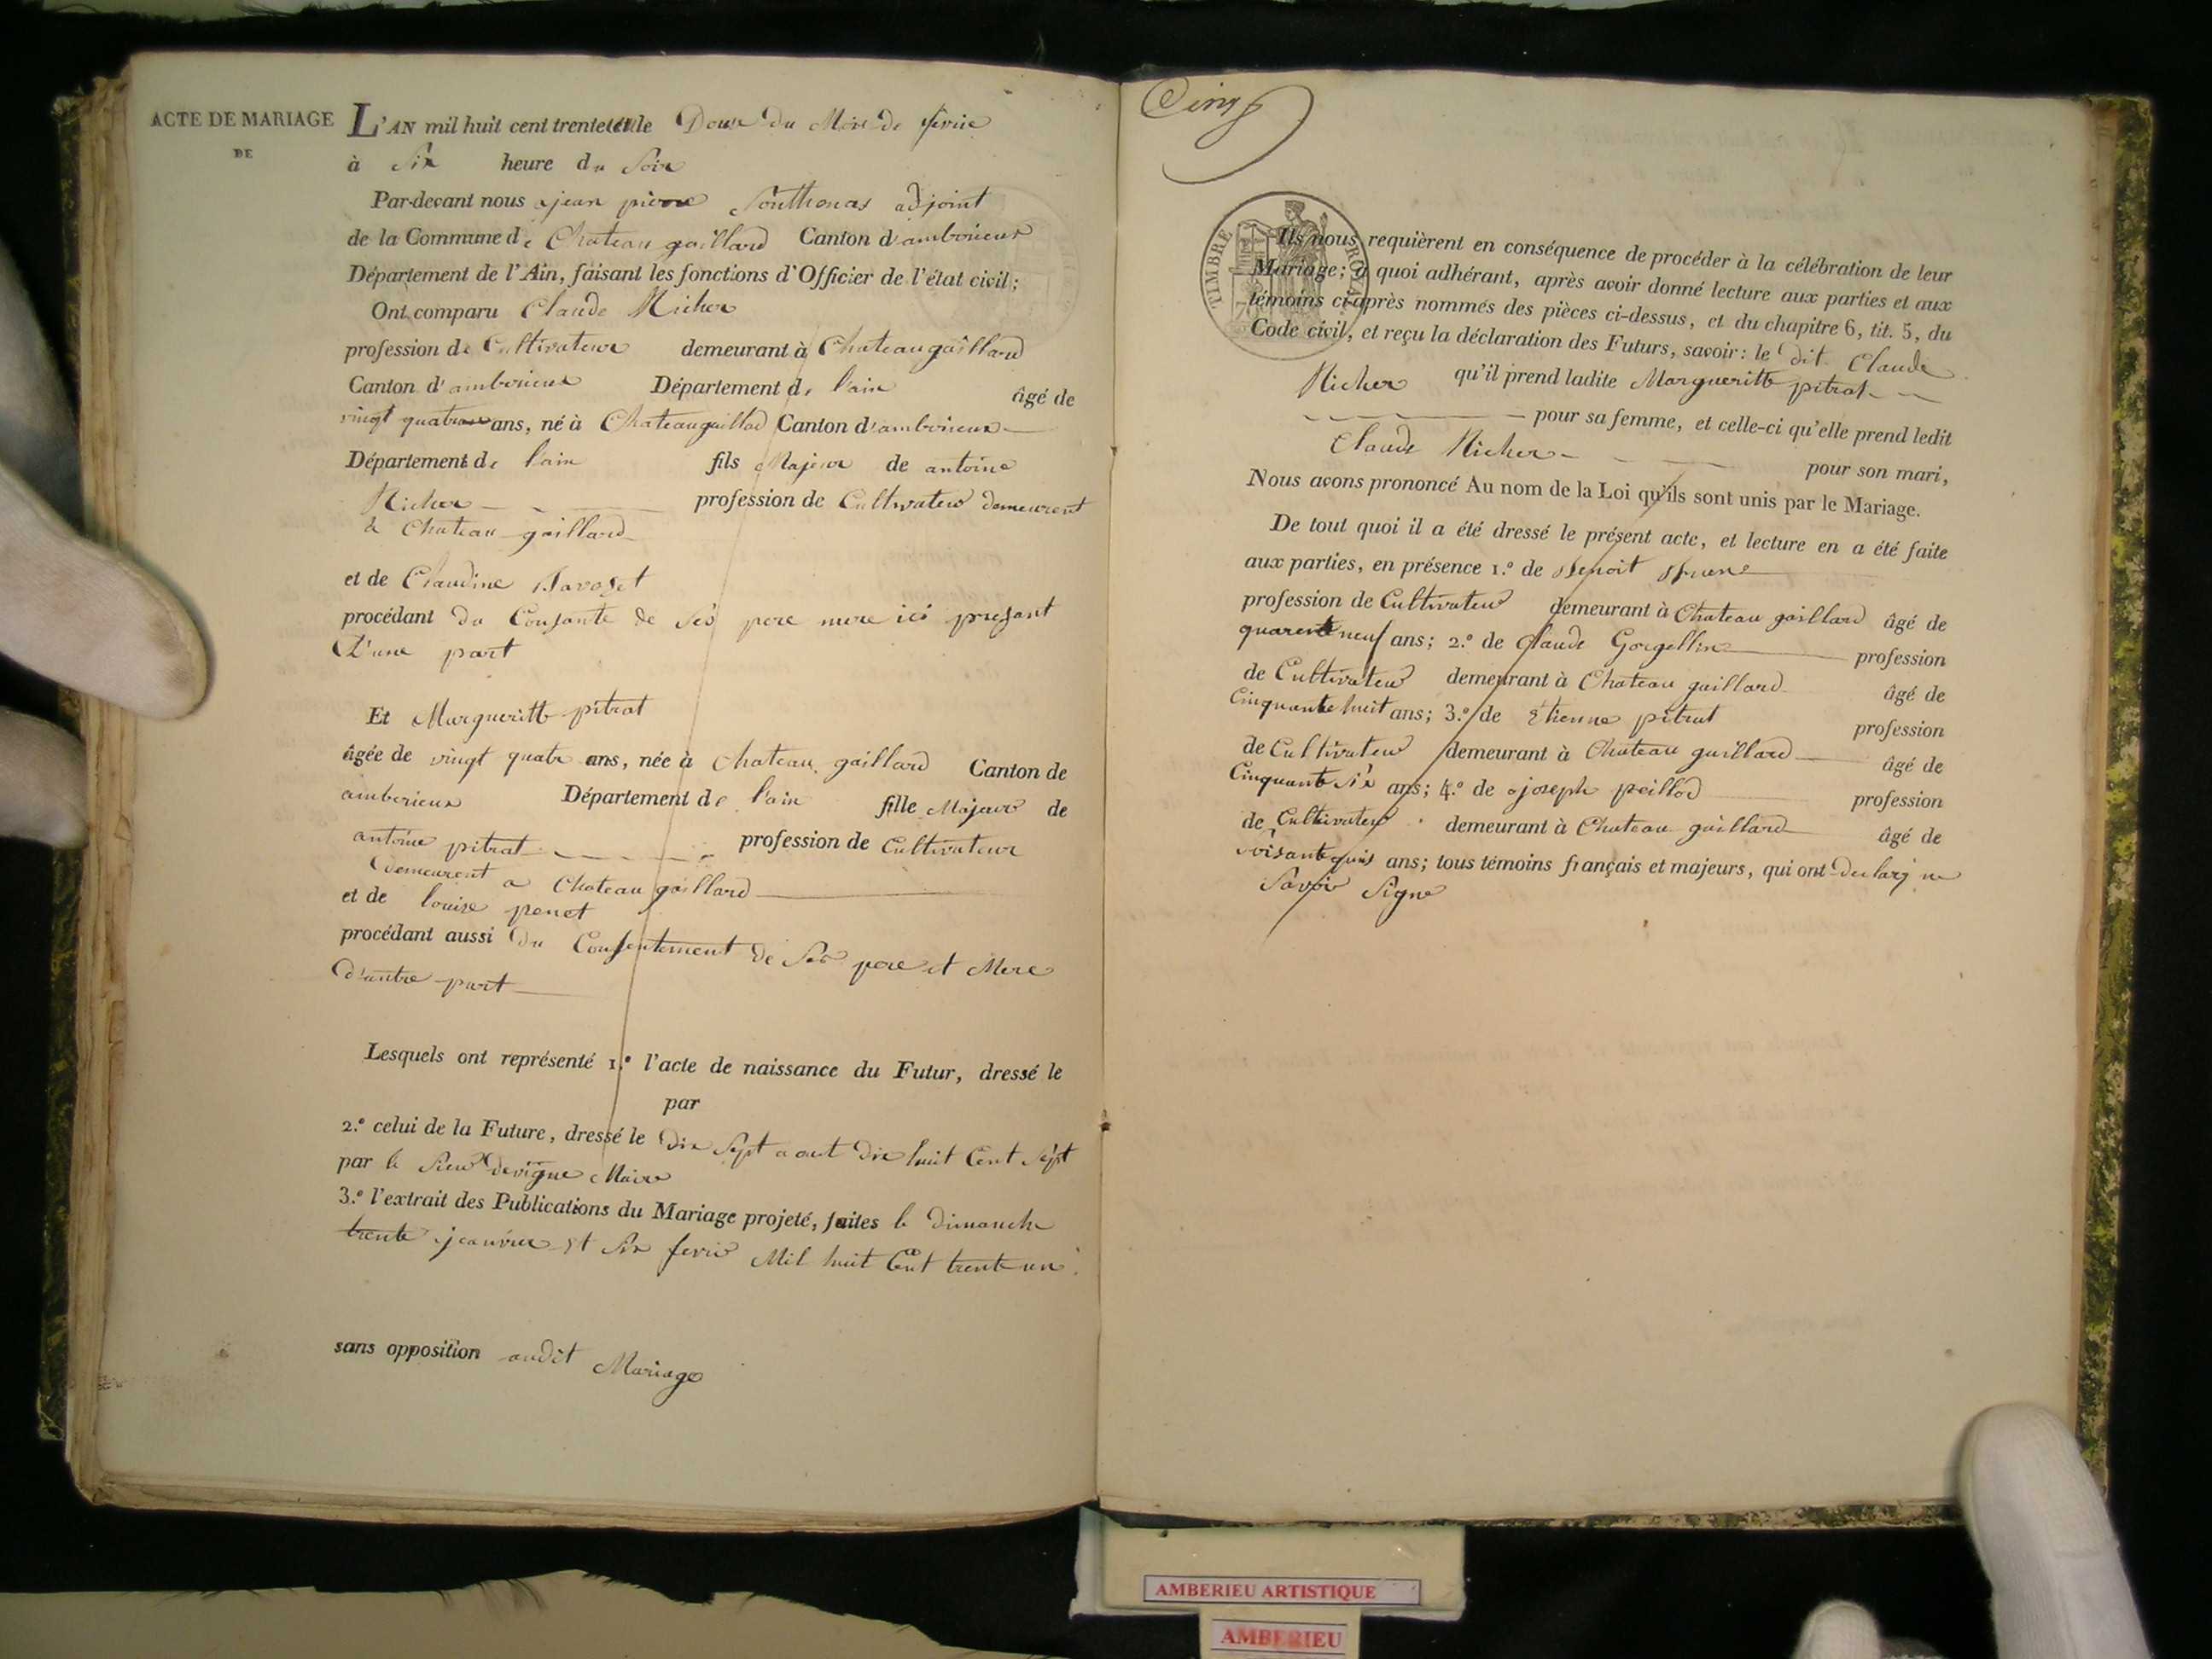 ACTE DE MARIAGE
DE
L'AN mil huit cent trente le Douze du Mois de fevrie
à Six heure du Soir
Par-devant nous jean pierre Southonas adjoint
de la Commune de Chateau gaillard Canton d'amberieux
Département de l'Ain, faisant les fonctions d'Officier de l'état civil;
Ont comparu Claude Richer
profession de Cultivateur demeurant à Chateaugaillard
Canton d'amberieux Département de l'ain âgé de
vingt quatre ans, né à Chateaugaillad Canton d'amberieux
Département de l'ain fils Majeur de antoine
Richer profession de Cultivateur demeurent
à Chateau gaillard
et de Claudine
procédant du de Ses pere mere ici
D'une part
Et Margueritte pitrat
âgée de vingt quatre ans, née à Chateau gaillard Canton de
amberieux Département de l'ain fille Majeur de
antoine pitrat profession de Cultivateur
demeurent a Chateau gaillard
et de louise penet
procédant aussi Du Consentement de Ses pere et Mere
d'autre part
Lesquels ont représenté 1.º l'acte de naissance du Futur, dressé le
par
2.º celui de la Future, dressé le Dix Sept aout Dix huit Cent Sept
par le Sieur Devigne Maire
3.º l'extrait des Publications du Mariage projeté, faites le Dimanche
trente jeanvier et Six fevrie Mil huit Cent trente un
sans opposition audit Mariage
Cinq
TIMBRE ROYAL
Ils nous requièrent en conséquence de procéder à la célébration de leur
Mariage; à quoi adhérant, après avoir donné lecture aux parties et aux
témoins ci-après nommés des pièces ci-dessus, et du chapitre 6, tit. 5, du
Code civil, et reçu la déclaration des Futurs, savoir: le dit Claude
Richer qu'il prend ladite Margueritte pitrat
pour sa femme, et celle-ci qu'elle prend ledit
Claude Richer pour son mari,
Nous avons prononcé Au nom de la Loi qu'ils sont unis par le Mariage.
De tout quoi il a été dressé le présent acte, et lecture en a été faite
aux parties, en présence 1.º de Benoit
profession de Cultivateur demeurant à Chateau gaillard âgé de
quarente neuf ans; 2.º de Claude Gorgellin profession
de Cultivateur demeurant à Chateau gaillard âgé de
Cinquante huit ans; 3.º de Etienne pitrat profession
de Cultivateur demeurant à Chateau gaillard âgé de
Cinquante Six ans; 4.º de joseph peillod profession
de Cultivateur demeurant à Chateau gaillard âgé de
ans; tous témoins français et majeurs, qui ont ne
Savoir Signe
AMBERIEU ARTISTIQUE
AMBERIEU